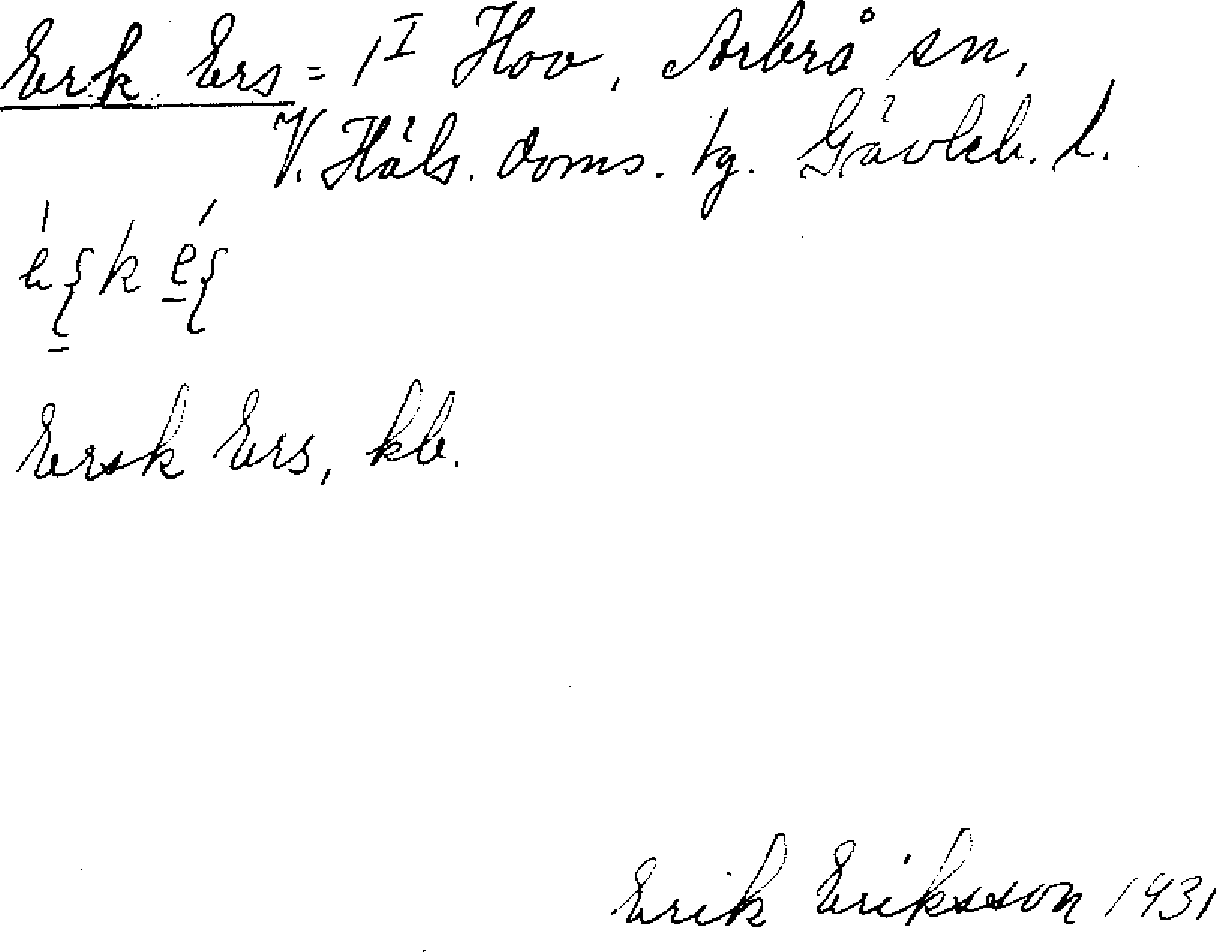 Erk Ers = 1^I Hov, Arbrå sn,
V. Häls. doms. tg. Gävleb. l.
Ersk Ers, kb.
Erik Eriksson 1931